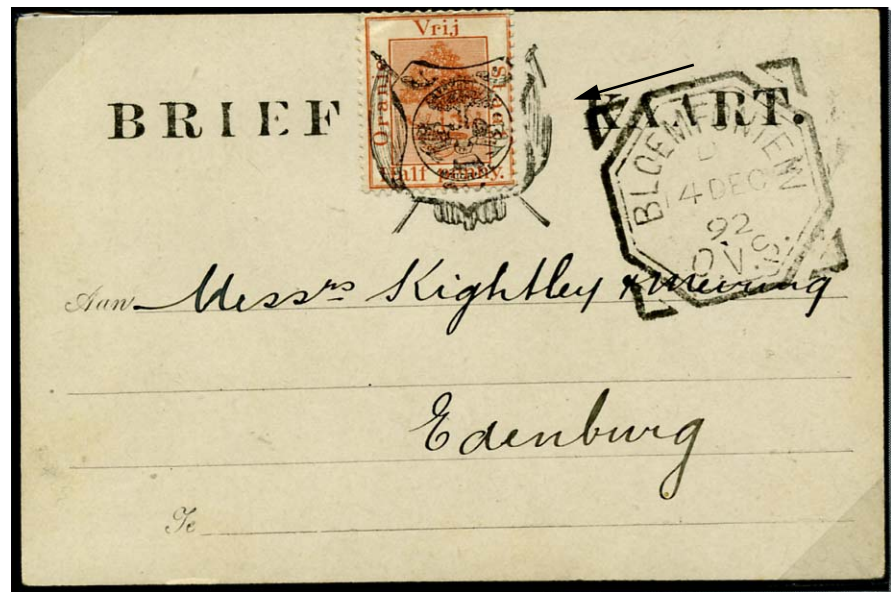 BRIEF KAART.
Vrij
Oranje
Staat
Half penny.
BLOEMFONTEIN
D
14 DEC
92
O.V.S.
Aan Messrs Kightley & Meuring
Edenburg
Te